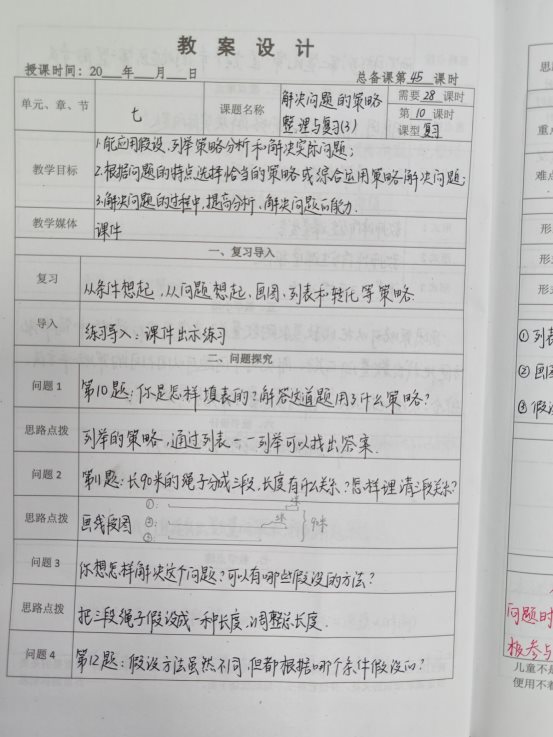 教 案 设 计
授课时间：20 年 月 日 总备课第 45 课时
单元、章、节 七 课题名称 解决问题的策略 整理与复习(3) 需要 28 课时
第 10 课时
课型 复习
教学目标 1.能应用假设、列举策略分析和解决实际问题;
2.根据问题的特点选择恰当的策略或综合运用策略解决问题;
3.解决问题的过程中,提高分析、解决问题的能力.
教学媒体 课件
一、复习导入
复习 从条件想起、从问题想起、画图、列表和转化等策略.
导入 练习导入:课件出示练习
二、问题探究
问题 1 第10题:你是怎样填表的?解答这道题用了什么策略?
思路点拨 列举的策略,通过列表一一列举可以找出答案.
问题 2 第11题:长90米的绳子分成三段,长度有什么关系?怎样理清三段关系?
思路点拨 画线段图 ①:
②:
③:
问题 3 你想怎样解决这个问题?可以有哪些假设的方法?
思路点拨 把三段绳子假设成一种长度,调整总长度.
问题 4 第12题:假设方法虽然不同,但都根据哪个条件假设的?
思
重
难
形
形
形
① 列表
② 画图
③ 假设
问题时
极参与
儿童不是
便用不着